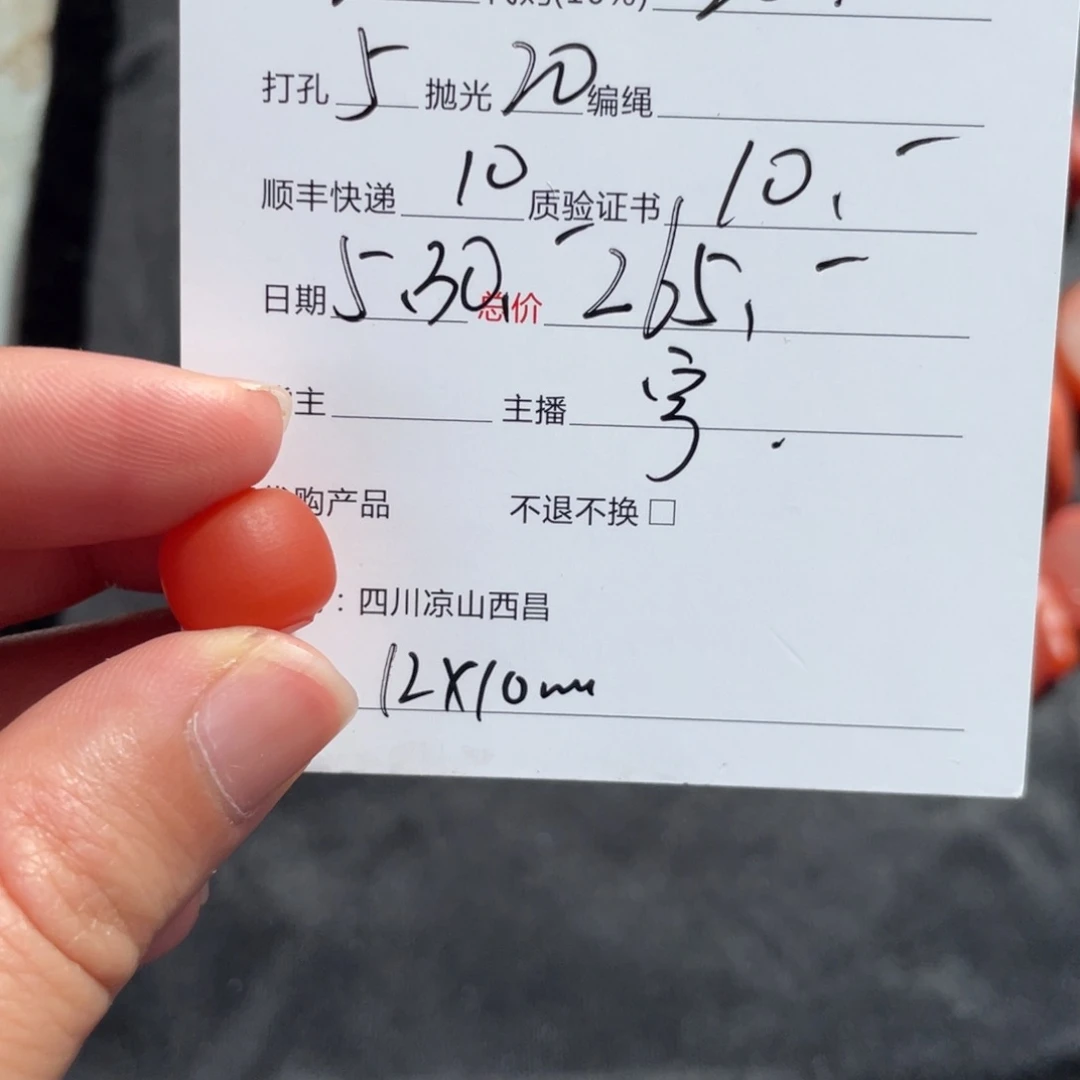 打孔 5 抛光 20 编绳
顺丰快递 10 质验证书 10.-
日期 5.30.- 总价 265.-
主 主播 宇.
购产品 不退不换 □
：四川凉山西昌
12X10mm